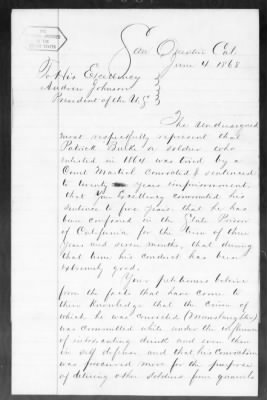 San Quentin Cal.
June 4 1868
To His Excellency
Andrew Johnson
President of the U.S.
The Undersigned
most respectfully represent that
Patrick Burke a soldier who
enlisted in 1864 was tried by a
Court Martial convicted & sentenced
to twenty years imprisonment.
that Your Excellency commuted his
sentence to five years, that he has
been confined in the State Prison
of California for the term of three
years and seven months, that during
that time his conduct has been
extremely good.
Your petitioners believe
from the facts that have come to
their knowledge that the crime of
which he was convicted (Manslaughter)
was committed while under the influence
of intoxicating drink and even then
in self defense and that his conviction
was procured more for the purpose
of detering other soldiers from quarrels